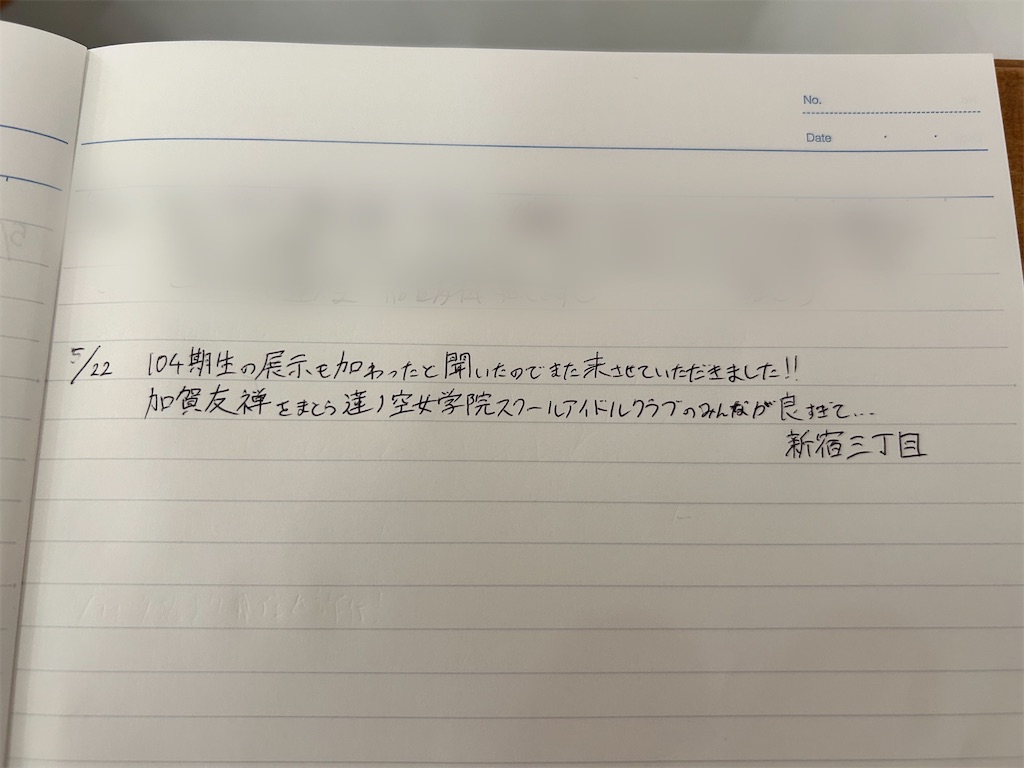 No.
Date
5/22 104期生の展示も加わったと聞いたのでまた来させていただきました!!
加賀友禅をまとう蓮ノ空女学院スクールアイドルクラブのみんなが良すぎて...
新宿三丁目